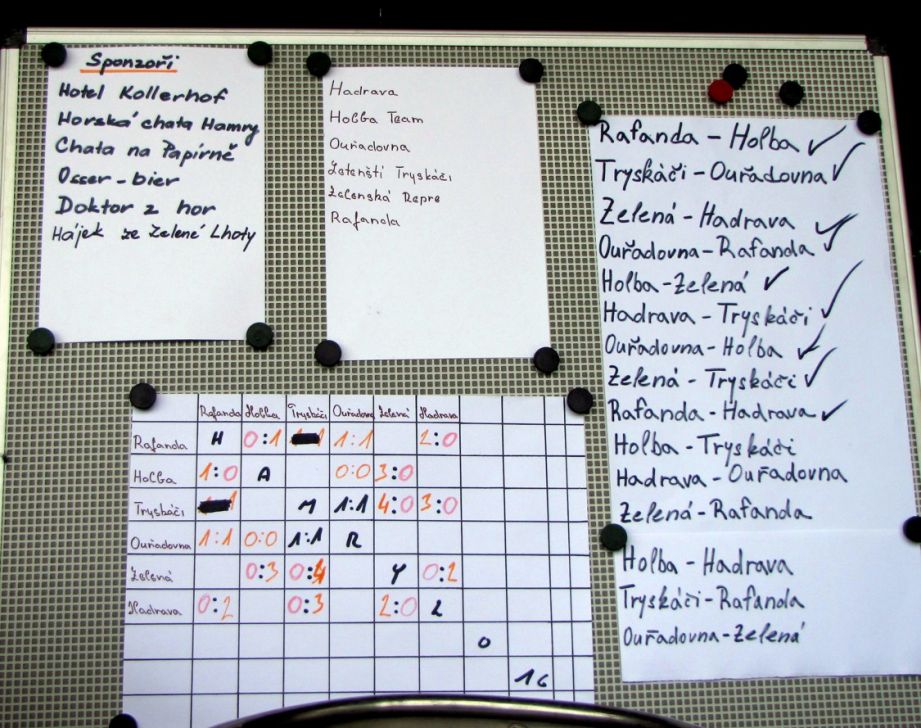 Sponzoři
Hotel Kollerhof
Horská chata Hamry
Chata na Papírně
Osser - bier
Doktor z hor
Hájek ze Zelené Lhoty
Hadrava
Holba Team
Ouřadovna
Zelenští Tryskáči
Zelenská Repre
Rafanda
Rafanda - Holba ✓
Tryskáči - Ouřadovna ✓
Zelená - Hadrava ✓
Ouřadovna - Rafanda ✓
Holba - Zelená ✓
Hadrava - Tryskáči ✓
Ouřadovna - Holba ✓
Zelená - Tryskáči ✓
Rafanda - Hadrava ✓
Holba - Tryskáči
Hadrava - Ouřadovna
Zelená - Rafanda
Holba - Hadrava
Tryskáči - Rafanda
Ouřadovna - Zelená
Rafanda Holba Tryskáči Ouřadovna Zelená Hadrava
Rafanda H 0:1 1:1 2:0
Holba 1:0 A 0:0 3:0
Tryskáči M 1:1 4:0 3:0
Ouřadovna 1:1 0:0 1:1 R
Zelená 0:3 0:4 Y 0:2
Hadrava 0:2 0:3 2:0 2
0
16